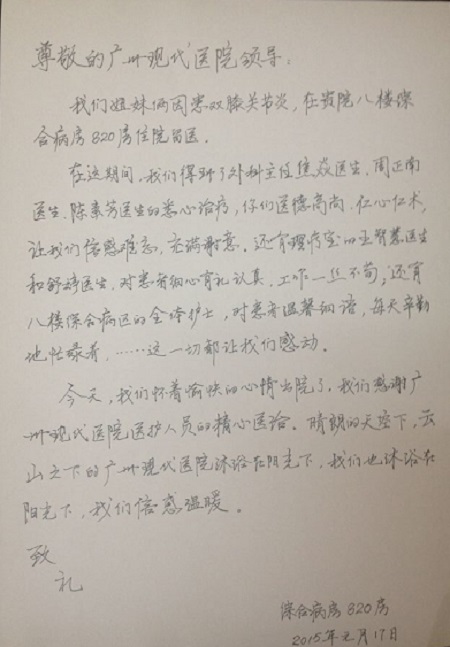 尊敬的广州现代医院领导：
我们姐妹俩因患双膝关节炎，在贵院八楼综
合病房820房住院留医。
在这期间，我们得到了外科主任焦焱医生、周正南
医生、陈素芳医生的悉心治疗，你们医德高尚、仁心仁术，
让我们倍感难忘，充满谢意。还有理疗室的王智慧医生
和舒婷医生，对患者细心有礼认真，工作一丝不苟；还有
八楼综合病区的全体护士，对患者温馨细语，每天辛勤
地忙碌着，……这一切都让我们感动。
今天，我们怀着愉快的心情出院了，我们感谢广
州现代医院医护人员的精心医治。晴朗的天空下，云
山之下的广州现代医院沐浴在阳光下，我们也沐浴在
阳光下，我们倍感温暖。
致
礼
综合病房820房
2015年元月17日